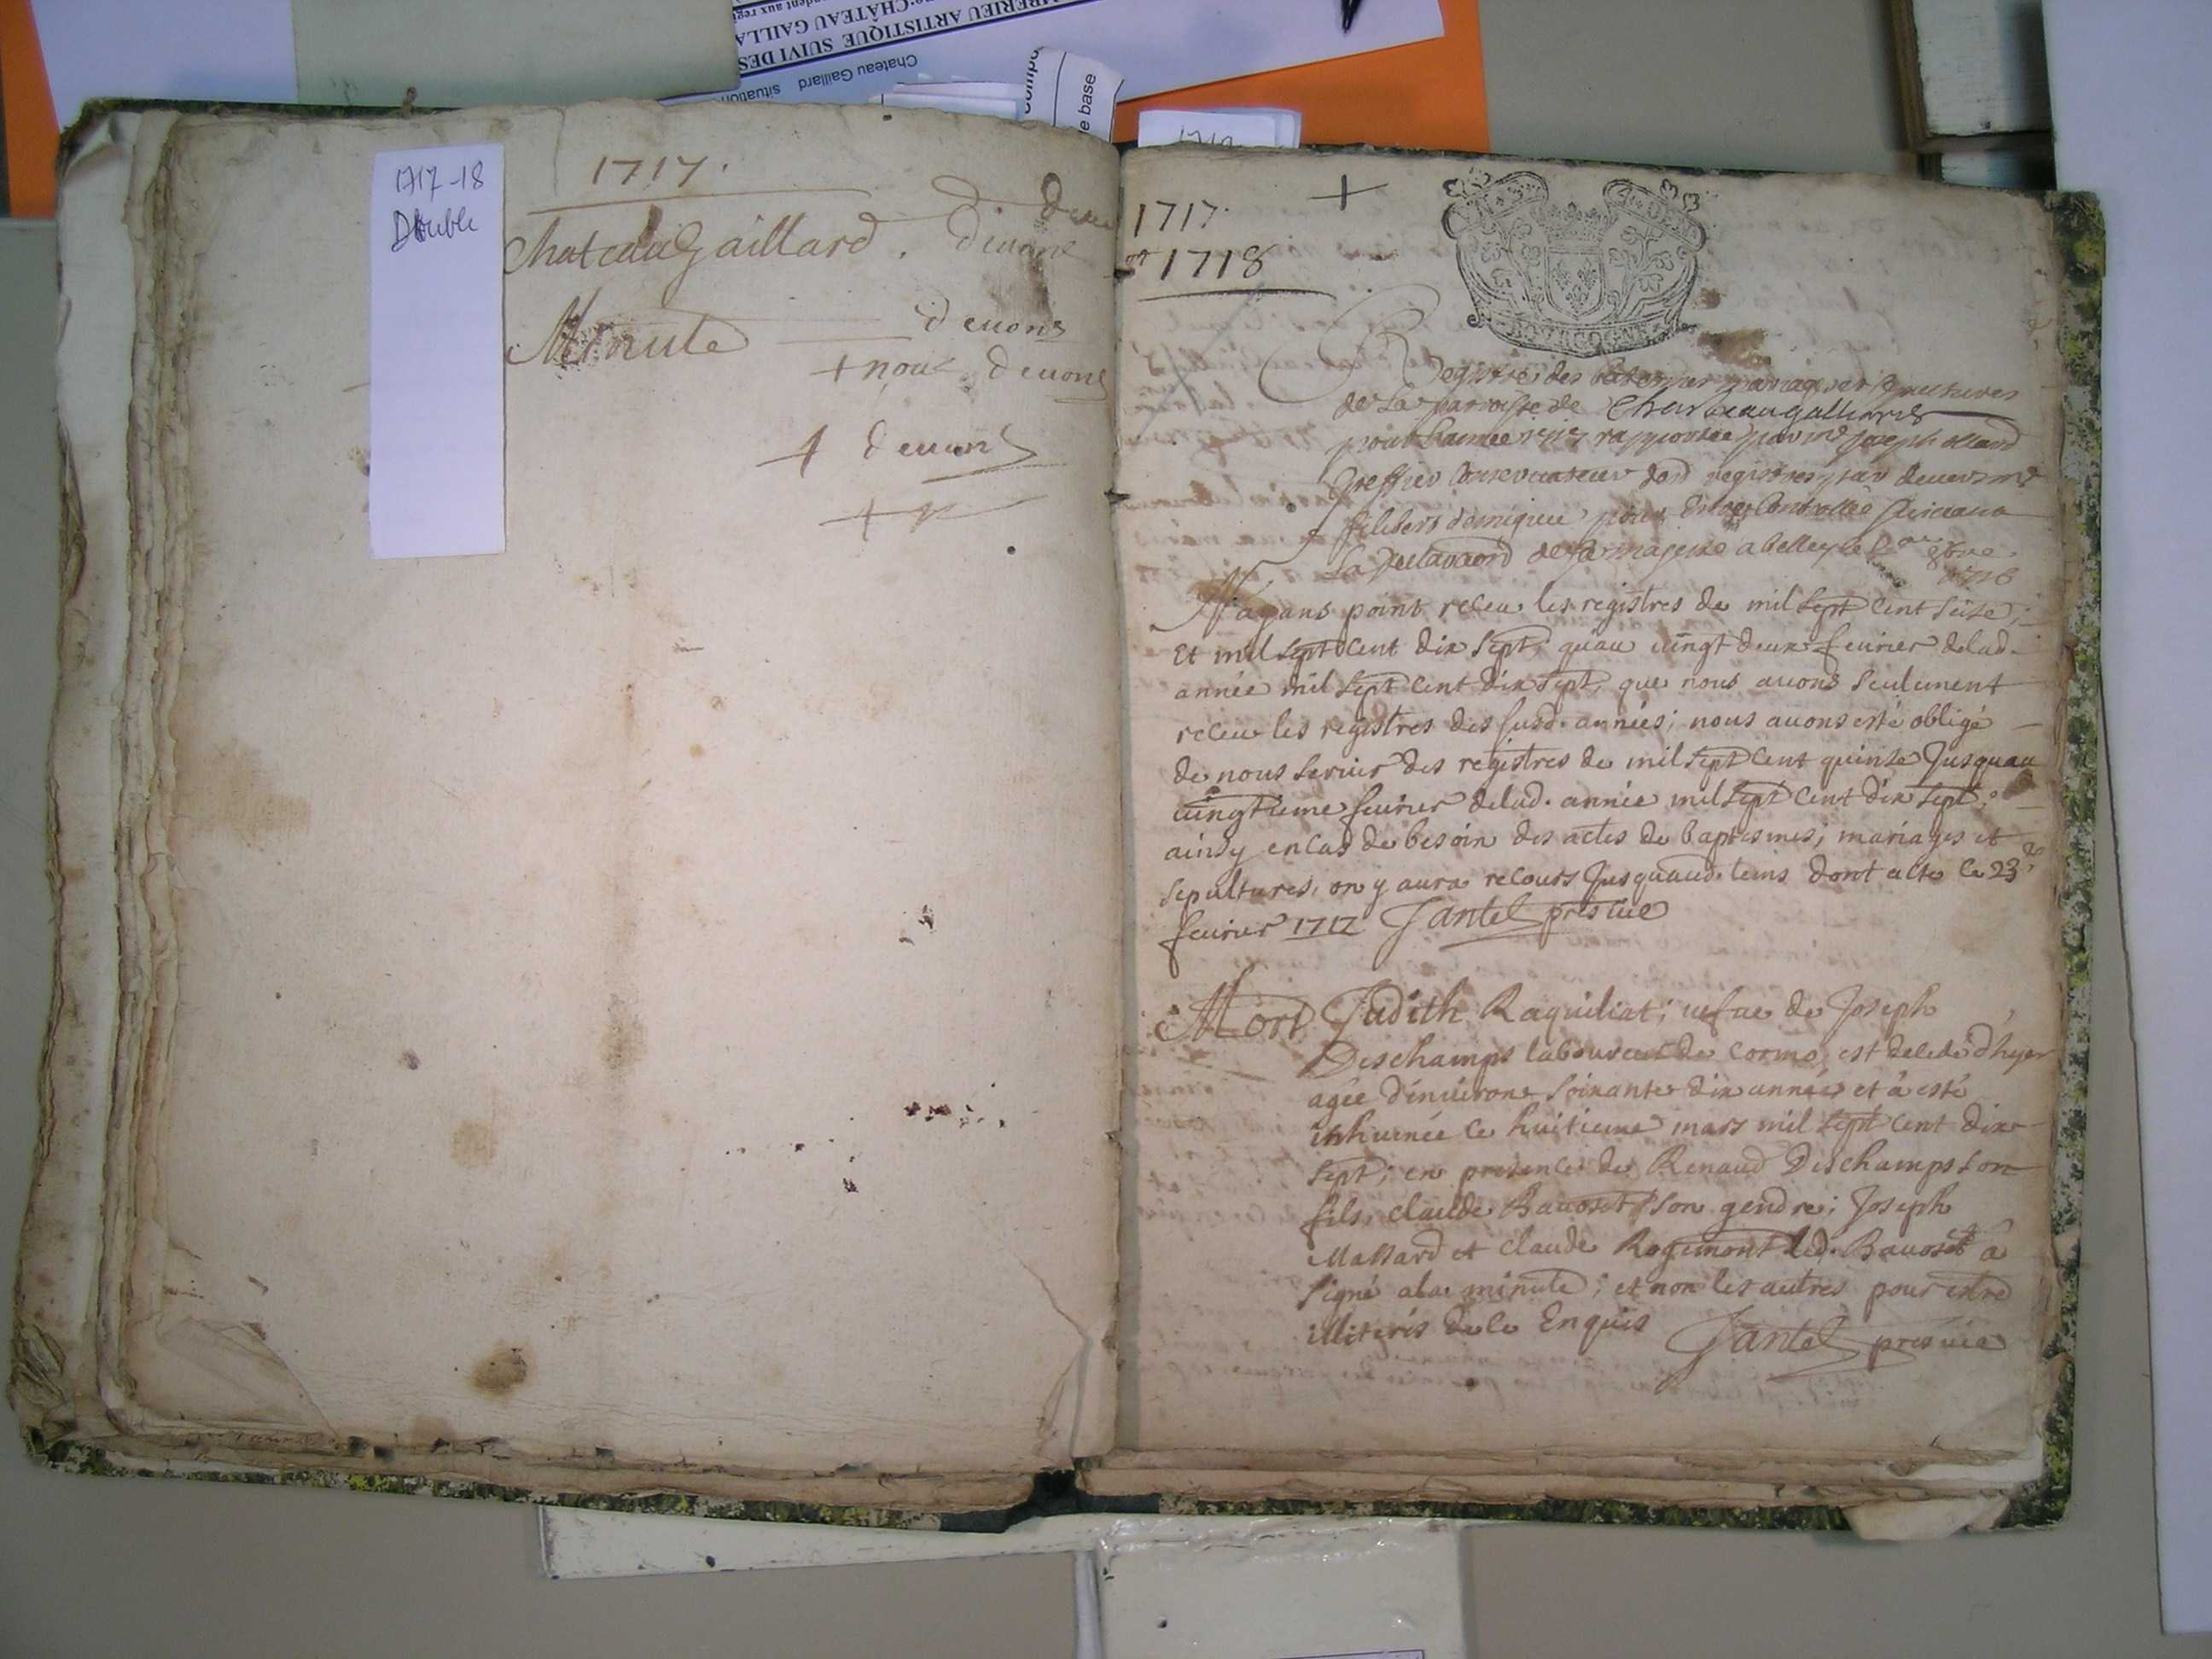 MBERIEU ARTISTIQUE SUIVI DES
CHÂTEAU GAILLA
Chateau Gaillard situation
e base
1717-18
Double
1717.
Chateaugaillard. Deuons
Minute deuons
+ nous deuons
deuons
1717.
1718
BOURGOGNE
Registre des batesmes mariages et sepultures
de la parroisse de Chasteaugalliard
pour l'année 1717 rapportée par me Joseph
greffier Conservateur desd registres par devers me
filibert demigieu pour Estre Controllée suivant
la declaraon de sa majesté a belley le 8bre
1716
N'ayans point receu les registres de mil sept cent seise;
et mil sept cent dix sept, qu'au uingt deux feurier delad.
année mil sept cent dix sept, que nous auons seulement
receu les registres des susd. années; nous auons esté obligé
de nous seruir des registres de mil sept cent quinse Jusquau
uingtieme feurier delad. année mil sept cent dix sept;
ainsy en cas de besoin des actes de baptesmes; mariages et
sepultures, on y aura recours Jusquaud. tems dont acte ce 23e
feurier 1717 Jantet pres uic
Mort Judith Raquiliat; uefue de Joseph
Deschamps laboureur de Cormo, est decedé d'hyer
agée d'enuirons soixante dix années et à esté
inhumée ce huitieme mars mil sept cent dix
sept; en presence de Renaud Deschamps son
fils, claude Bauoset son gendre; Joseph
Massard et claude Rogemont led. Bauoset à
signé a la minute; et non les autres pour estre
illiterés de ce Enquis Jantet pres uic